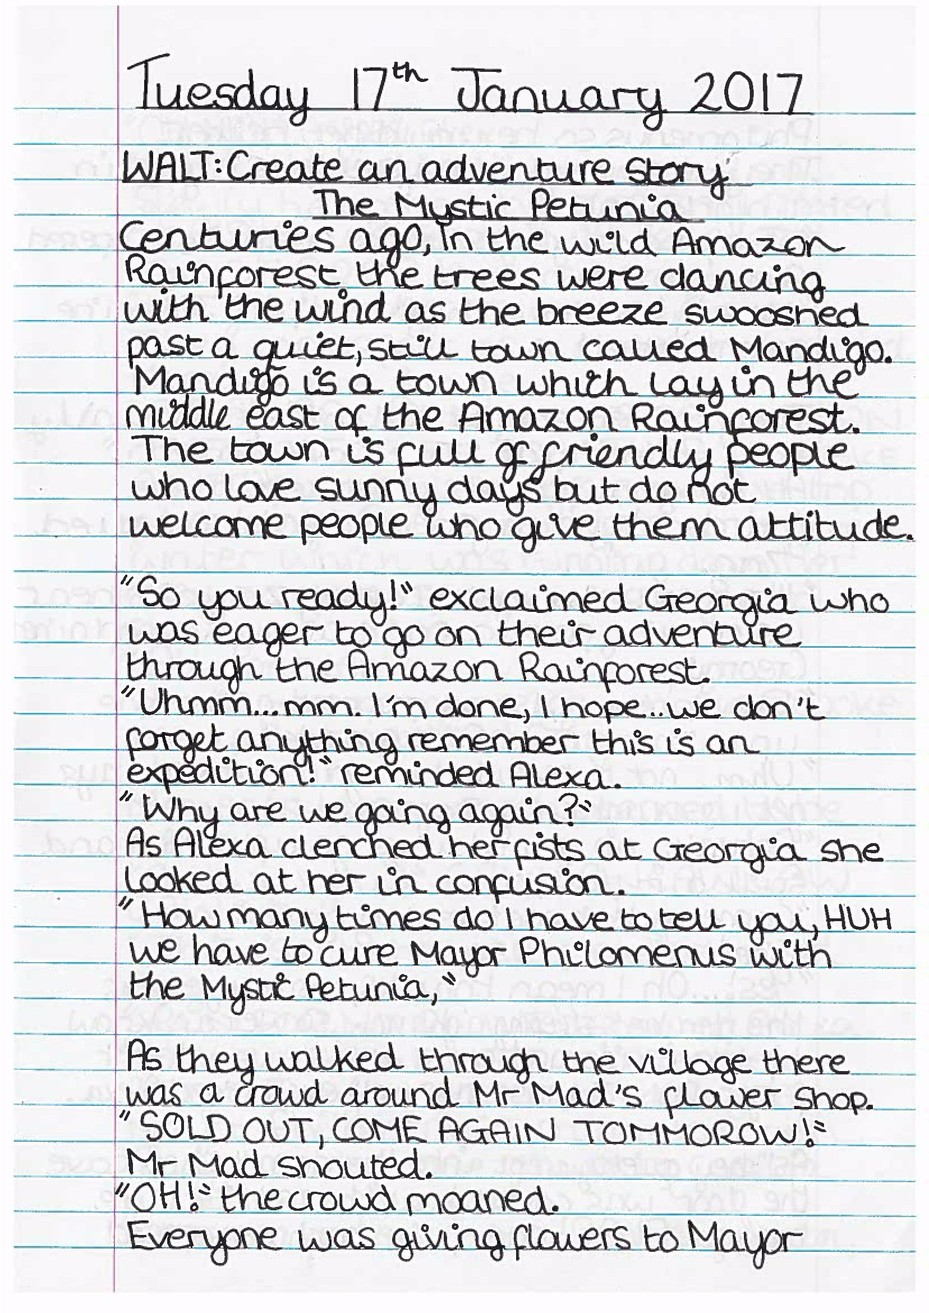 Tuesday 17th January 2017
WALT: Create an adventure story
The Mystic Petunia
Centuries ago, in the wild Amazon
Rainforest, the trees were dancing
with the wind as the breeze swooshed
past a quiet, still town called Mandigo.
Mandigo is a town which lay in the
middle east of the Amazon Rainforest.
The town is full of friendly people
who love sunny days but do not
welcome people who give them attitude.
"So you ready!" exclaimed Georgia who
was eager to go on their adventure
through the Amazon Rainforest.
"Uhmm...mm. I'm done, I hope..we don't
forget anything remember this is an
expedition!" reminded Alexa.
"Why are we going again?"
As Alexa clenched her fists at Georgia she
looked at her in confusion.
"How many times do I have to tell you, HUH
we have to cure Mayor Philomenus with
the Mystic Petunia,"
As they walked through the village there
was a crowd around Mr Mad's flower shop.
"SOLD OUT, COME AGAIN TOMMOROW!"
Mr Mad shouted.
"OH!" the crowd moaned.
Everyone was giving flowers to Mayor